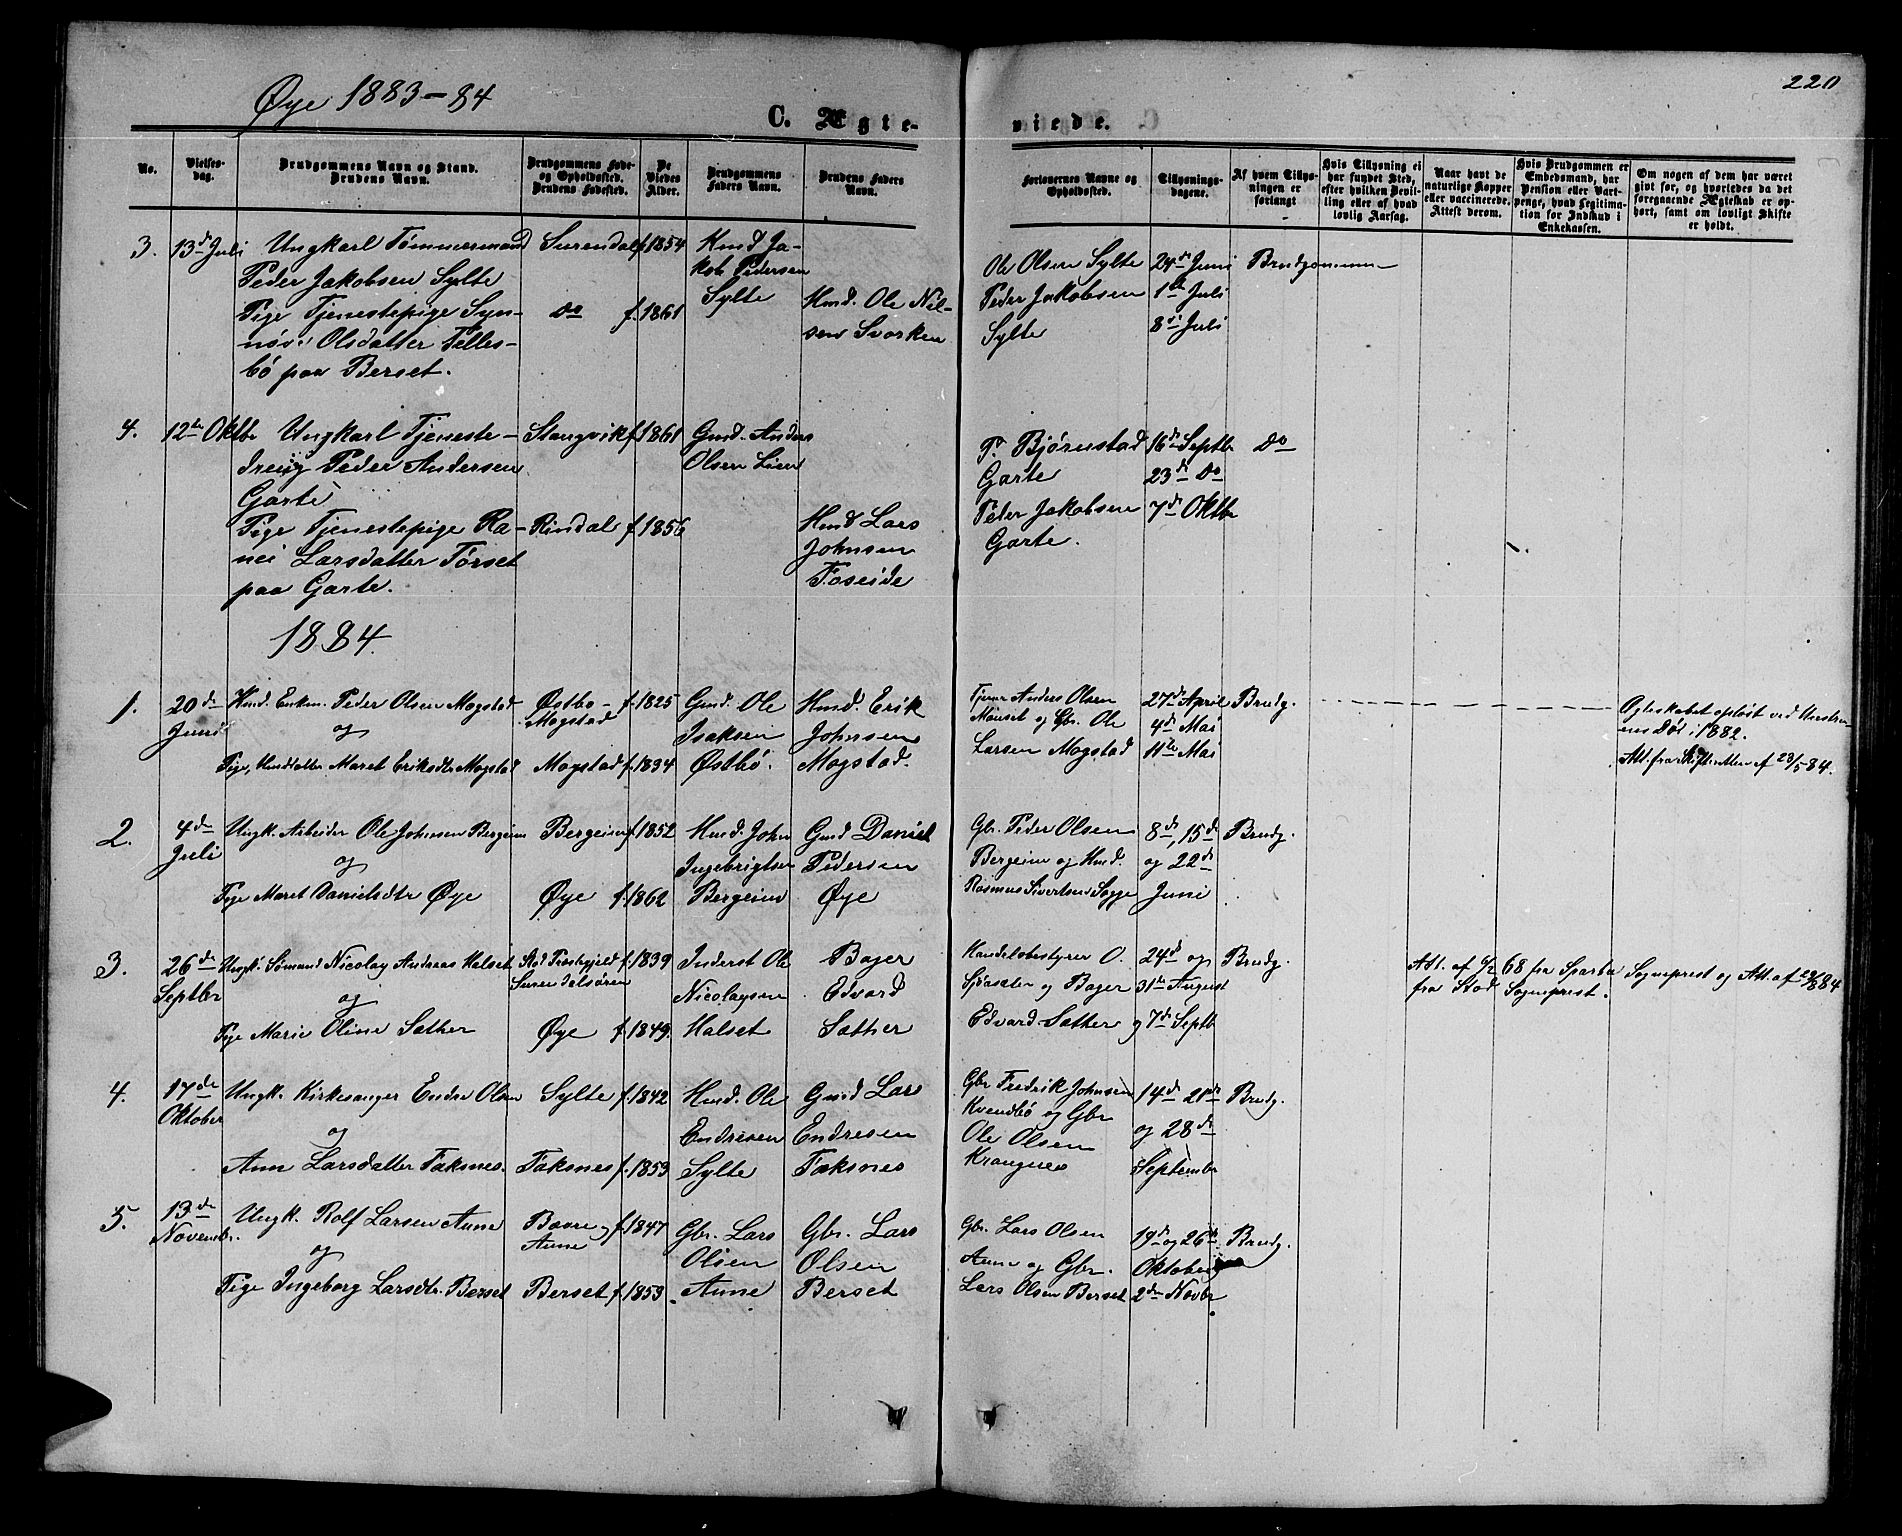 Øye 1883-84
220
C. Ægte-
viede.
No.
Vielses-
dag.
Brudgommens Navn og Stand.
Brudens Navn.
Brudgommens Føde-
og Opholdssted.
Brudens Fødested.
De
Viedes
Alder.
Brudgommens
Faders Navn.
Brudens Faders
Navn.
Forlovernes Navne og
Opholdssted.
Tillysnings-
dagene.
Af hvem Tillys-
ningen er
forlangt
Hvis Tillysning ei
har fundet Sted,
efter hvilken Bevil-
ling eller af hvad
lovlig Aarsag.
Naar havt de
naturlige Kopper
eller vaccinerede.
Attest derom.
Hvis Brudgommen er
Embedsmand, har
Pension eller Vart-
penge, hvad Legitima-
tion for Indskud i
Enkekassen.
Om nogen af dem har været
gift før, og hvorledes da det
foregaaende Ægteskab er op-
hørt, samt om lovligt Skifte
er holdt.
3.
13de Juli
Ungkarl Tømmermand
Peder Jakobsen Sylte
Pige Tjenestepige Syn-
növ Olsdatter Telles-
bö paa Berset.
Surendal
do
f. 1854
f. 1861
Hmd Ja-
kob Pedersen
Sylte
Hmd. Ole Nil-
sen Svorken
Ole Olsen Sylte
Peder Jakobsen
Sylte
24de Juni
1ste Juli
8de Juli
Brudgommen
4.
12te Oktbr
Ungkarl Tjeneste-
dreng Peder Andersen
Garte
Pige Tjenestepige Ra-
nei Larsdatter Törset
paa Garte.
Stangvik
Rindal
f. 1861
f. 1856
Gmd. Anders
Olsen Lien
Hmd Lars
Johnsen
Foseide
P. Bjørnstad
Garte
Peder Jakobsen
Garte.
16de Septbr
23de do
7de Oktbr
do
1884.
1.
20de
Juni
Hmd. Enkm. Peder Olsen Mogstad
og
Pige, Hmdtatter Maret Eriksdtr Mogstad
Østbø-
Mogstad
Mogstad
f. 1825
f. 1834
Gmd. Ole
Isaksen
Østbö.
Hmd. Erik
Johnsen
Mogstad.
Tjener Anders Olsen
Mauset og Gbr. Ole
Larsen Mogstad
27de April
4de Mai
11te Mai
Brudg.
Ægteskabet opløst ved Hustru-
ens Død i 1882.
Att. fra Skifteretten af 23/5 84.
2.
4de
Juli
Ungk. Arbeider Ole Johnsen Bergeim
og
Pige Maret Danielsdtr Øye
Bergeim
Øye
f. 1852
f. 1862
Hmd. John
Ingebrigtsen
Bergeim
Gmd Daniel
Pedersen
Øye
Gbr. Peder Olsen
Bergeim og Hmd.
Rasmus Sivertsen Sogge
8de, 15de
og 22de
Juni
Brudg.
3.
26de
Septbr
Ungk. Sömand Nicolay Andreas Halset
og
Pige Marie Oline Sæther
Stod Præstegjeld
Surendalsören
Øye
f. 1839
f. 1849.
Inderst Ole
Nicolaysen
Halset
Bager
Edvard
Sæther
Handelsbestyrer O.
Sjösæter og Bager
Edvard Sæther
24de og
31te August
og 7de Septb
Brudg.
Att. af 6/2 68 fra Sparbu Sogneprest og Att. af 29/8 84
fra Stod Sogneprest.
4.
17de
Oktober
Ungk. Kirkesanger Endre Olsen
og
Ann Larsdatter Faksnes
Sylte
Faksnes
f. 1842
f. 1853
Hmd. Ole
Endresen
Sylte
Gmd Lars
Endresen
Faksnes
Gbr Fredrik Johnsen
Kvendbö og Gbr
Ole Olsen
Krangnes
14de 21de
og 28de
September
Brudg.
5.
13de
Novembr.
Ungk. Rolf Larsen Aune
og
Pige Ingeborg Larsdtr. Berset
Bævre,
Aune
Berset
f. 1847
f. 1853
Gbr. Lars
Olsen
Aune
Gbr. Lars
Olsen
Berset
Gbr. Lars Olsen
Aune og Gbr.
Lars Olsen Berset
19de og 26de
Oktober
2den Novbr
Brudg.